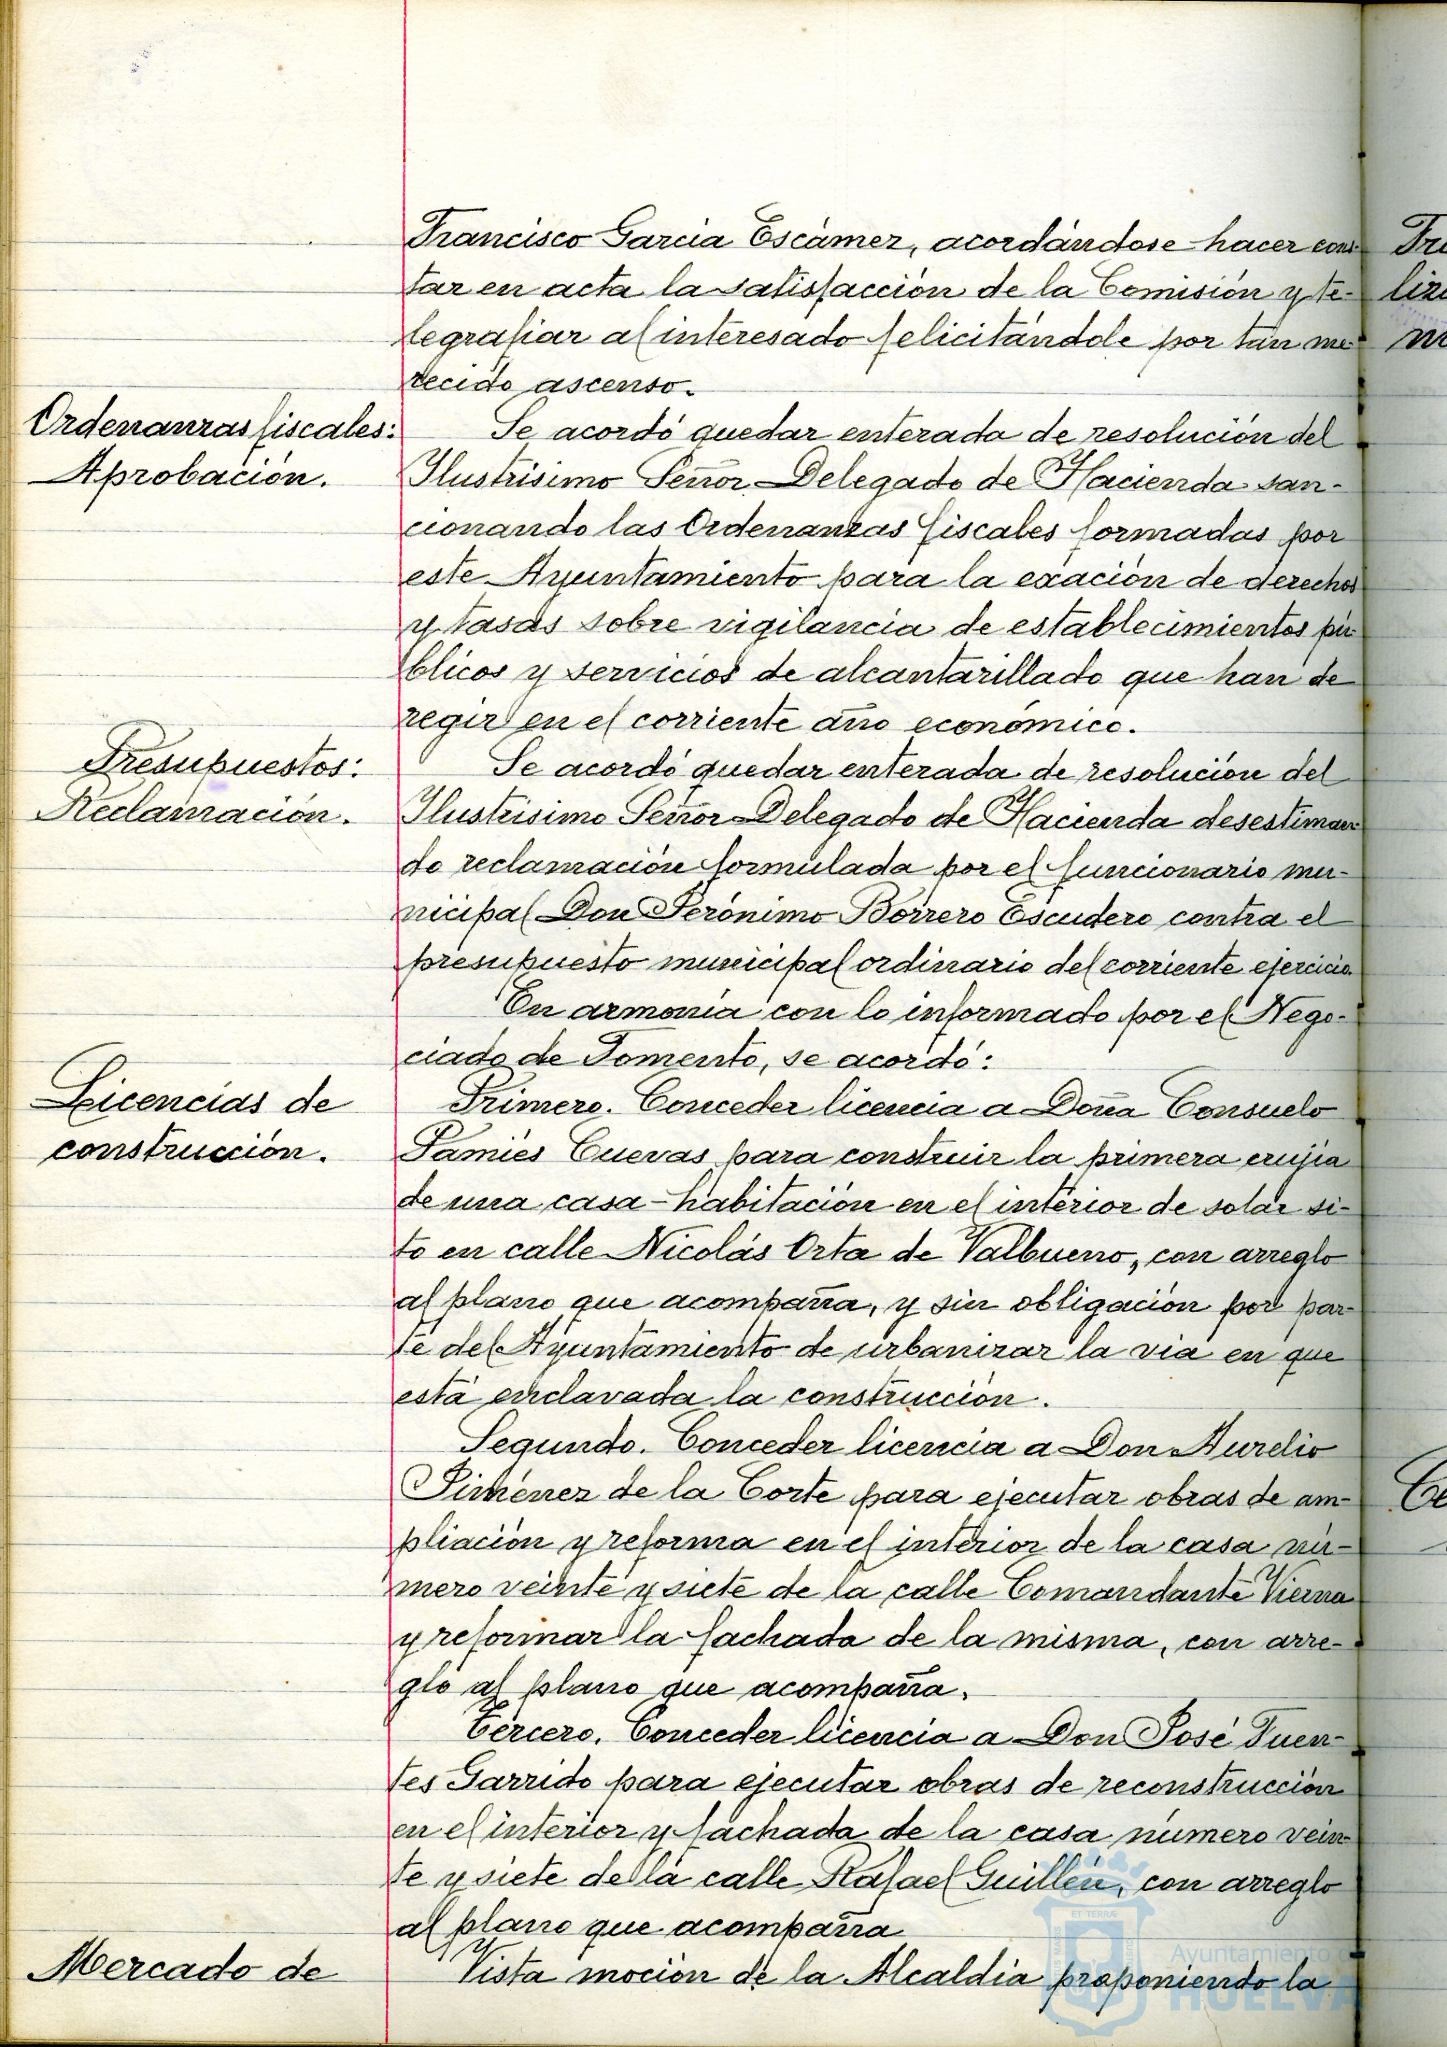 Francisco Garcia Escámez, acordándose hacer cons-
tar en acta la satisfacción de la Comisión y te-
legrafiar al interesado felicitándole por tan me-
recido ascenso.
Ordenanzas fiscales:
Aprobación.
Se acordó quedar enterada de resolución del
Ilustrísimo Señor Delegado de Hacienda san-
cionando las Ordenanzas fiscales formadas por
este Ayuntamiento para la exación de derechos
y tasas sobre vigilancia de establecimientos pú-
blicos y servicios de alcantarillado que han de
regir en el corriente año económico.
Presupuestos:
Reclamación.
Se acordó quedar enterada de resolución del
Ilustrísimo Señor Delegado de Hacienda desestiman-
do reclamación formulada por el funcionario mu-
nicipal Don Jerónimo Borrero Escudero contra el
presupuesto municipal ordinario del corriente ejercicio.
En armonía con lo informado por el Nego-
ciado de Fomento, se acordó:
Licencias de
construcción.
Primero. Conceder licencia a Doña Consuelo
Pamiés Cuevas para construir la primera crujía
de una casa-habitación en el interior de solar si-
to en calle Nicolás Orta de Valbueno, con arreglo
al plano que acompaña, y sin obligación por par-
te del Ayuntamiento de urbanizar la vía en que
está enclavada la construcción.
Segundo. Conceder licencia a Don Aurelio
Jiménez de la Corte para ejecutar obras de am-
pliación y reforma en el interior de la casa nú-
mero veinte y siete de la calle Comandante Vierna
y reformar la fachada de la misma, con arre-
glo al plano que acompaña.
Tercero. Conceder licencia a Don José Fuen-
tes Garrido para ejecutar obras de reconstrucción
en el interior y fachada de la casa número vein-
te y siete de la calle Rafael Guillén, con arreglo
al plano que acompaña
Mercado de
Vista moción de la Alcaldía proponiendo la
Ayuntamiento de
HUELVA